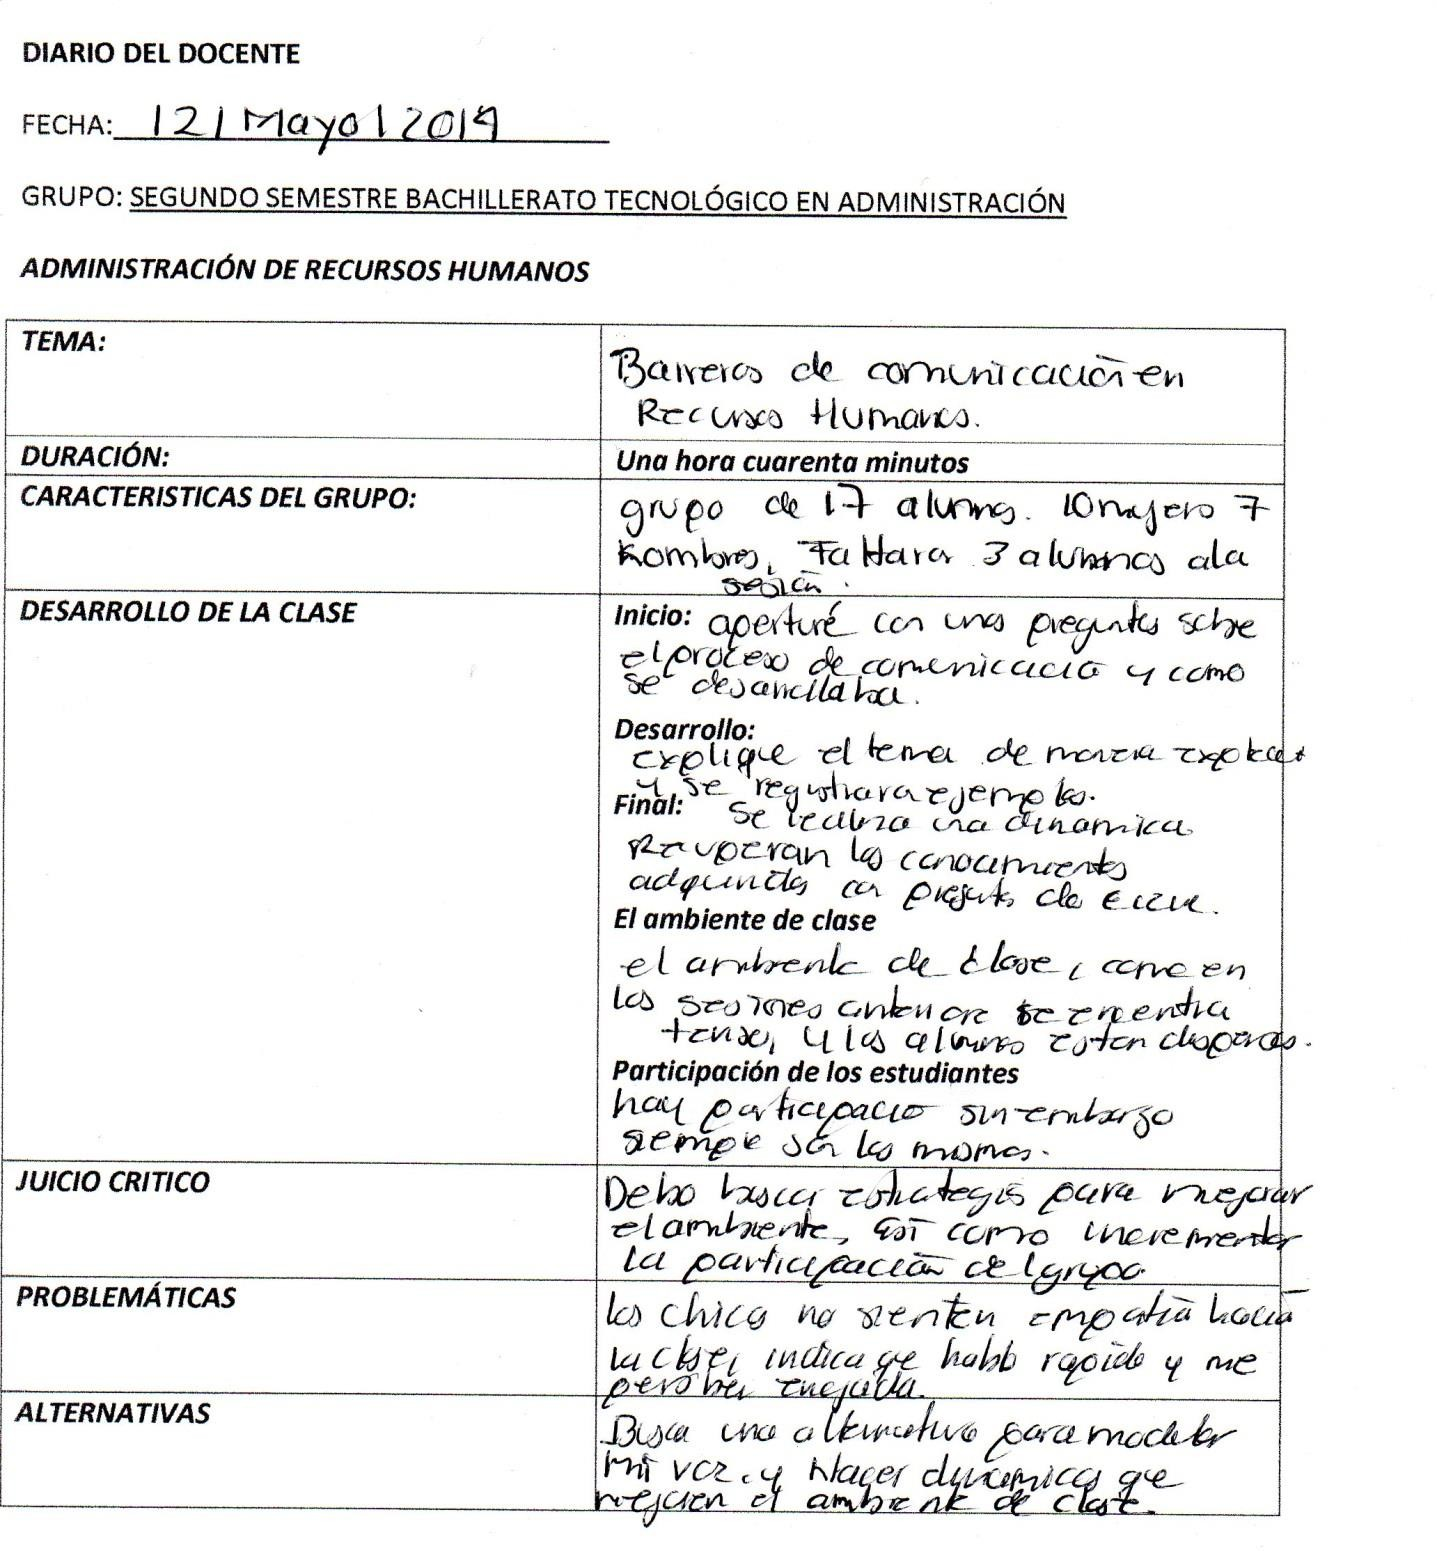 DIARIO DEL DOCENTE
FECHA: 12 / Mayo / 2019
GRUPO: SEGUNDO SEMESTRE BACHILLERATO TECNOLÓGICO EN ADMINISTRACIÓN
ADMINISTRACIÓN DE RECURSOS HUMANOS
TEMA:
Barreras de comunicación en
Recursos Humanos.
DURACIÓN:
Una hora cuarenta minutos
CARACTERISTICAS DEL GRUPO:
grupo de 17 alumnos. 10 mujeres 7
hombres, Faltaron 3 alumnos a la
sesión.
DESARROLLO DE LA CLASE
Inicio: aperturé con unas preguntas sobre
el proceso de comunicación y como
se desarrollaba.
Desarrollo:
explique el tema de manera
y se registraron ejemplos.
Final: Se realiza una dinamica
Recuperan los conocimientos
adquiridos con de
El ambiente de clase
el ambiente de clase, como en
las sesiones anteriores se encuentra
tenso, y los alumnos estan dispersos.
Participación de los estudiantes
hay participacion sin embargo
siempre son los mismos.
JUICIO CRITICO
Debo buscar estrategias para mejorar
el ambiente, así como incrementar
la participación del grupo
PROBLEMÁTICAS
los chicos no sienten empatía hacia
la clase, indica que hablo rapido y me
perciben enojada.
ALTERNATIVAS
Busca una alternativa para modular
mi voz. y Hacer dinamicas que
mejoren el ambiente de clase.